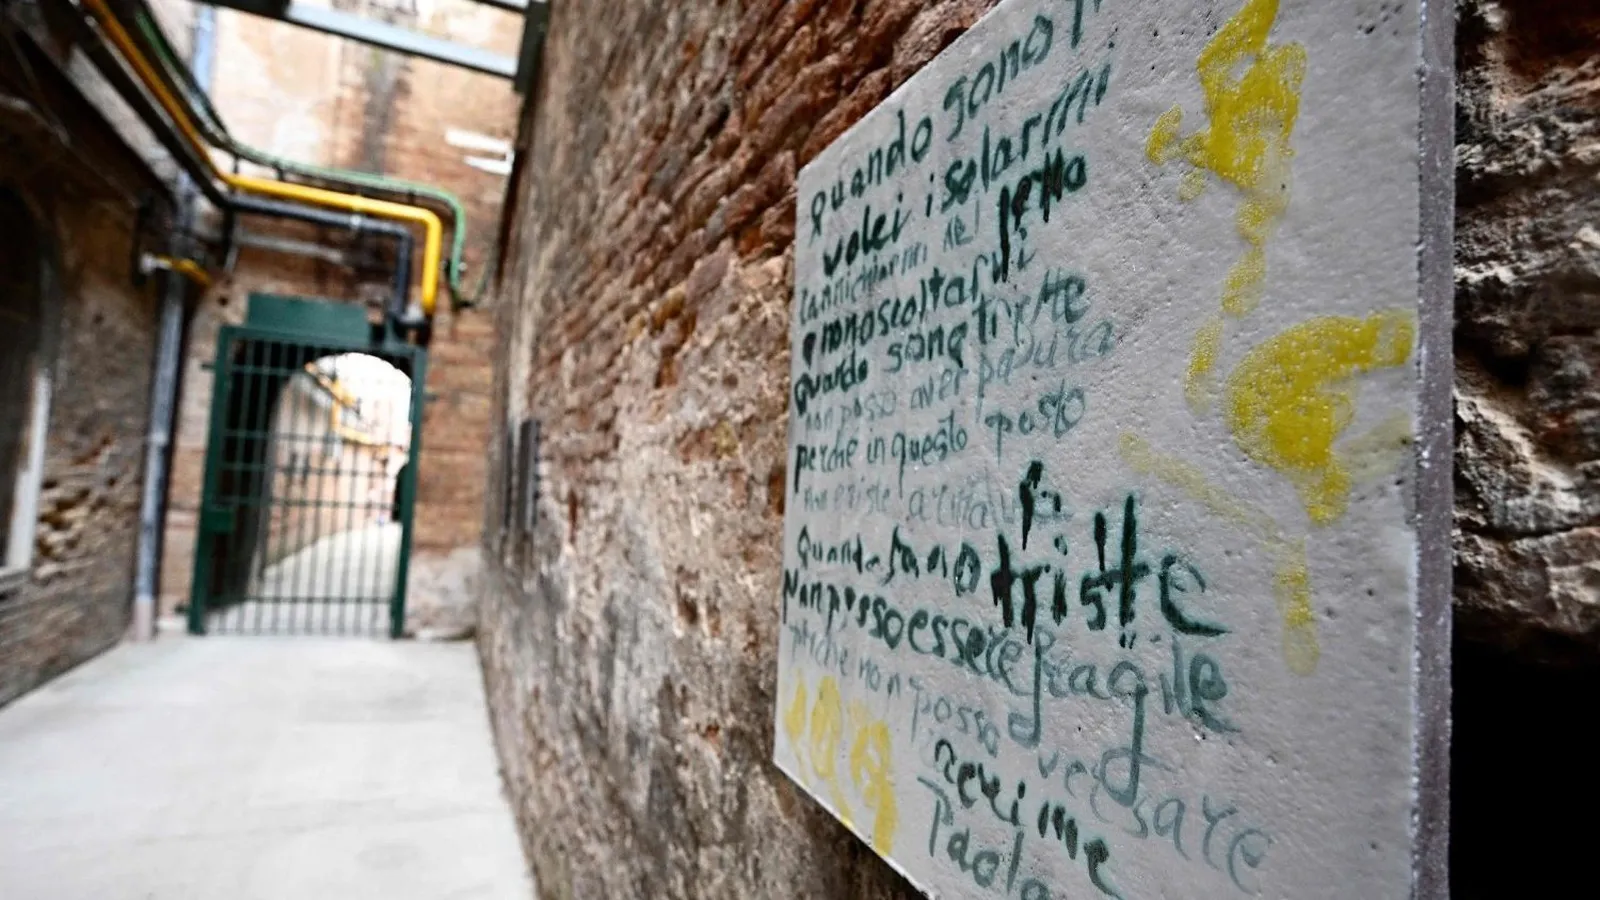 Quando sono tr
volei isolarmi
rannichiarmi nel letto
e non ascoltarvi
Quando sono triste
non posso aver paura
perche in questo posto
non esiste
Quando sono triste
Non posso essere fragile
perche non posso versare
Paola